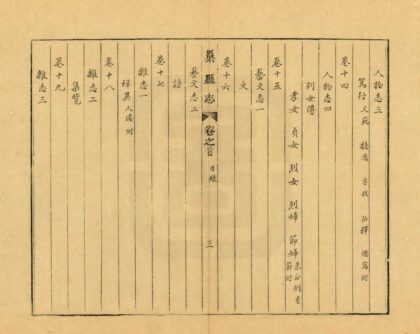 人物志三
篤行 文苑 隱逸 方技 仙釋 僑寓附
卷十四
人物志四
列女傳
孝女 貞女 烈女 烈婦 節婦 未 例者節附
卷十五
藝文志一
文
卷十六
巢縣志 卷之首 目錄 三
藝文志二
詩
卷十七
雜志一
祥異 人瑞附
卷十八
雜志二
集覽
卷十九
雜志三